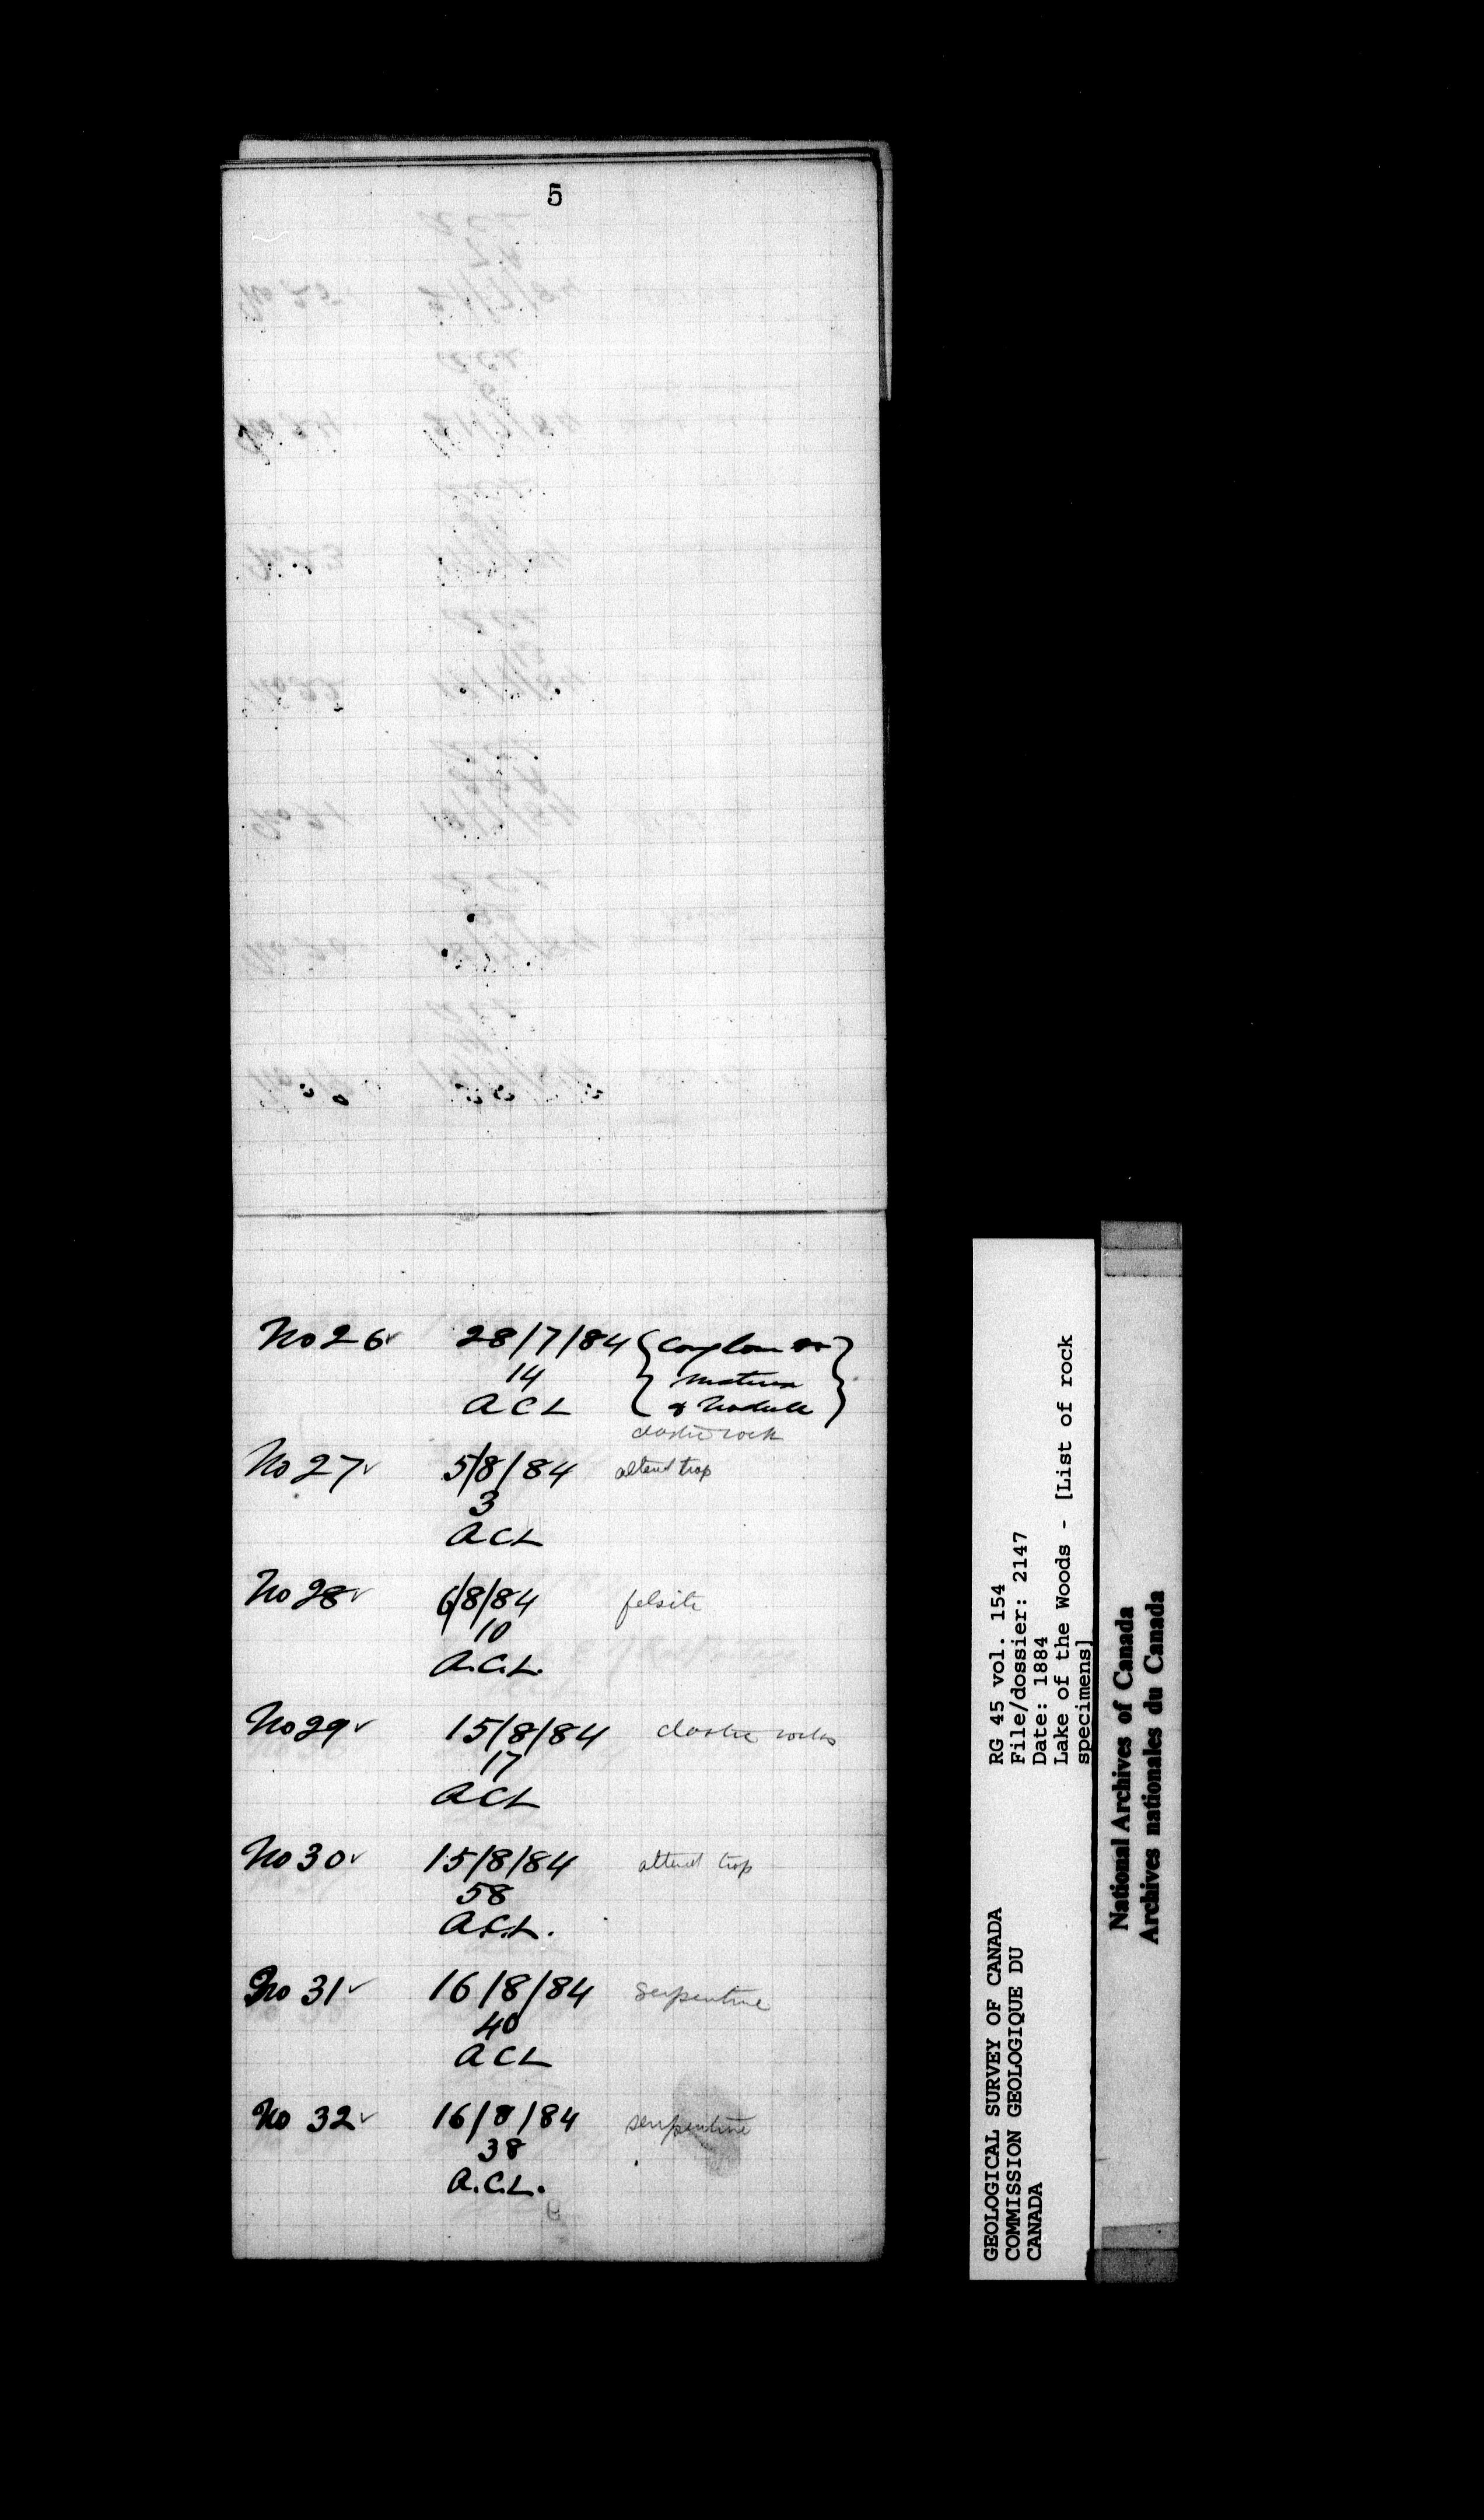 5
No 26 ✓ 28/7/84 { Conglom
14 matrix
ACL & Nodule }
clastic rock
No 27 ✓ 5/8/84 altered trap
3
ACL
No 28 ✓ 6/8/84 felsite
10
A.C.L.
No 29 ✓ 15/8/84 clastic rocks
17
ACL
No 30 ✓ 15/8/84 altered trap
58
A.C.L.
No 31 ✓ 16/8/84 Serpentine
40
ACL
No 32 ✓ 16/8/84 serpentine
38
A.C.L.
GEOLOGICAL SURVEY OF CANADA
COMMISSION GEOLOGIQUE DU
CANADA
RG 45 vol. 154
File/dossier: 2147
Date: 1884
Lake of the Woods - [List of rock
specimens]
National Archives of Canada
Archives nationales du Canada